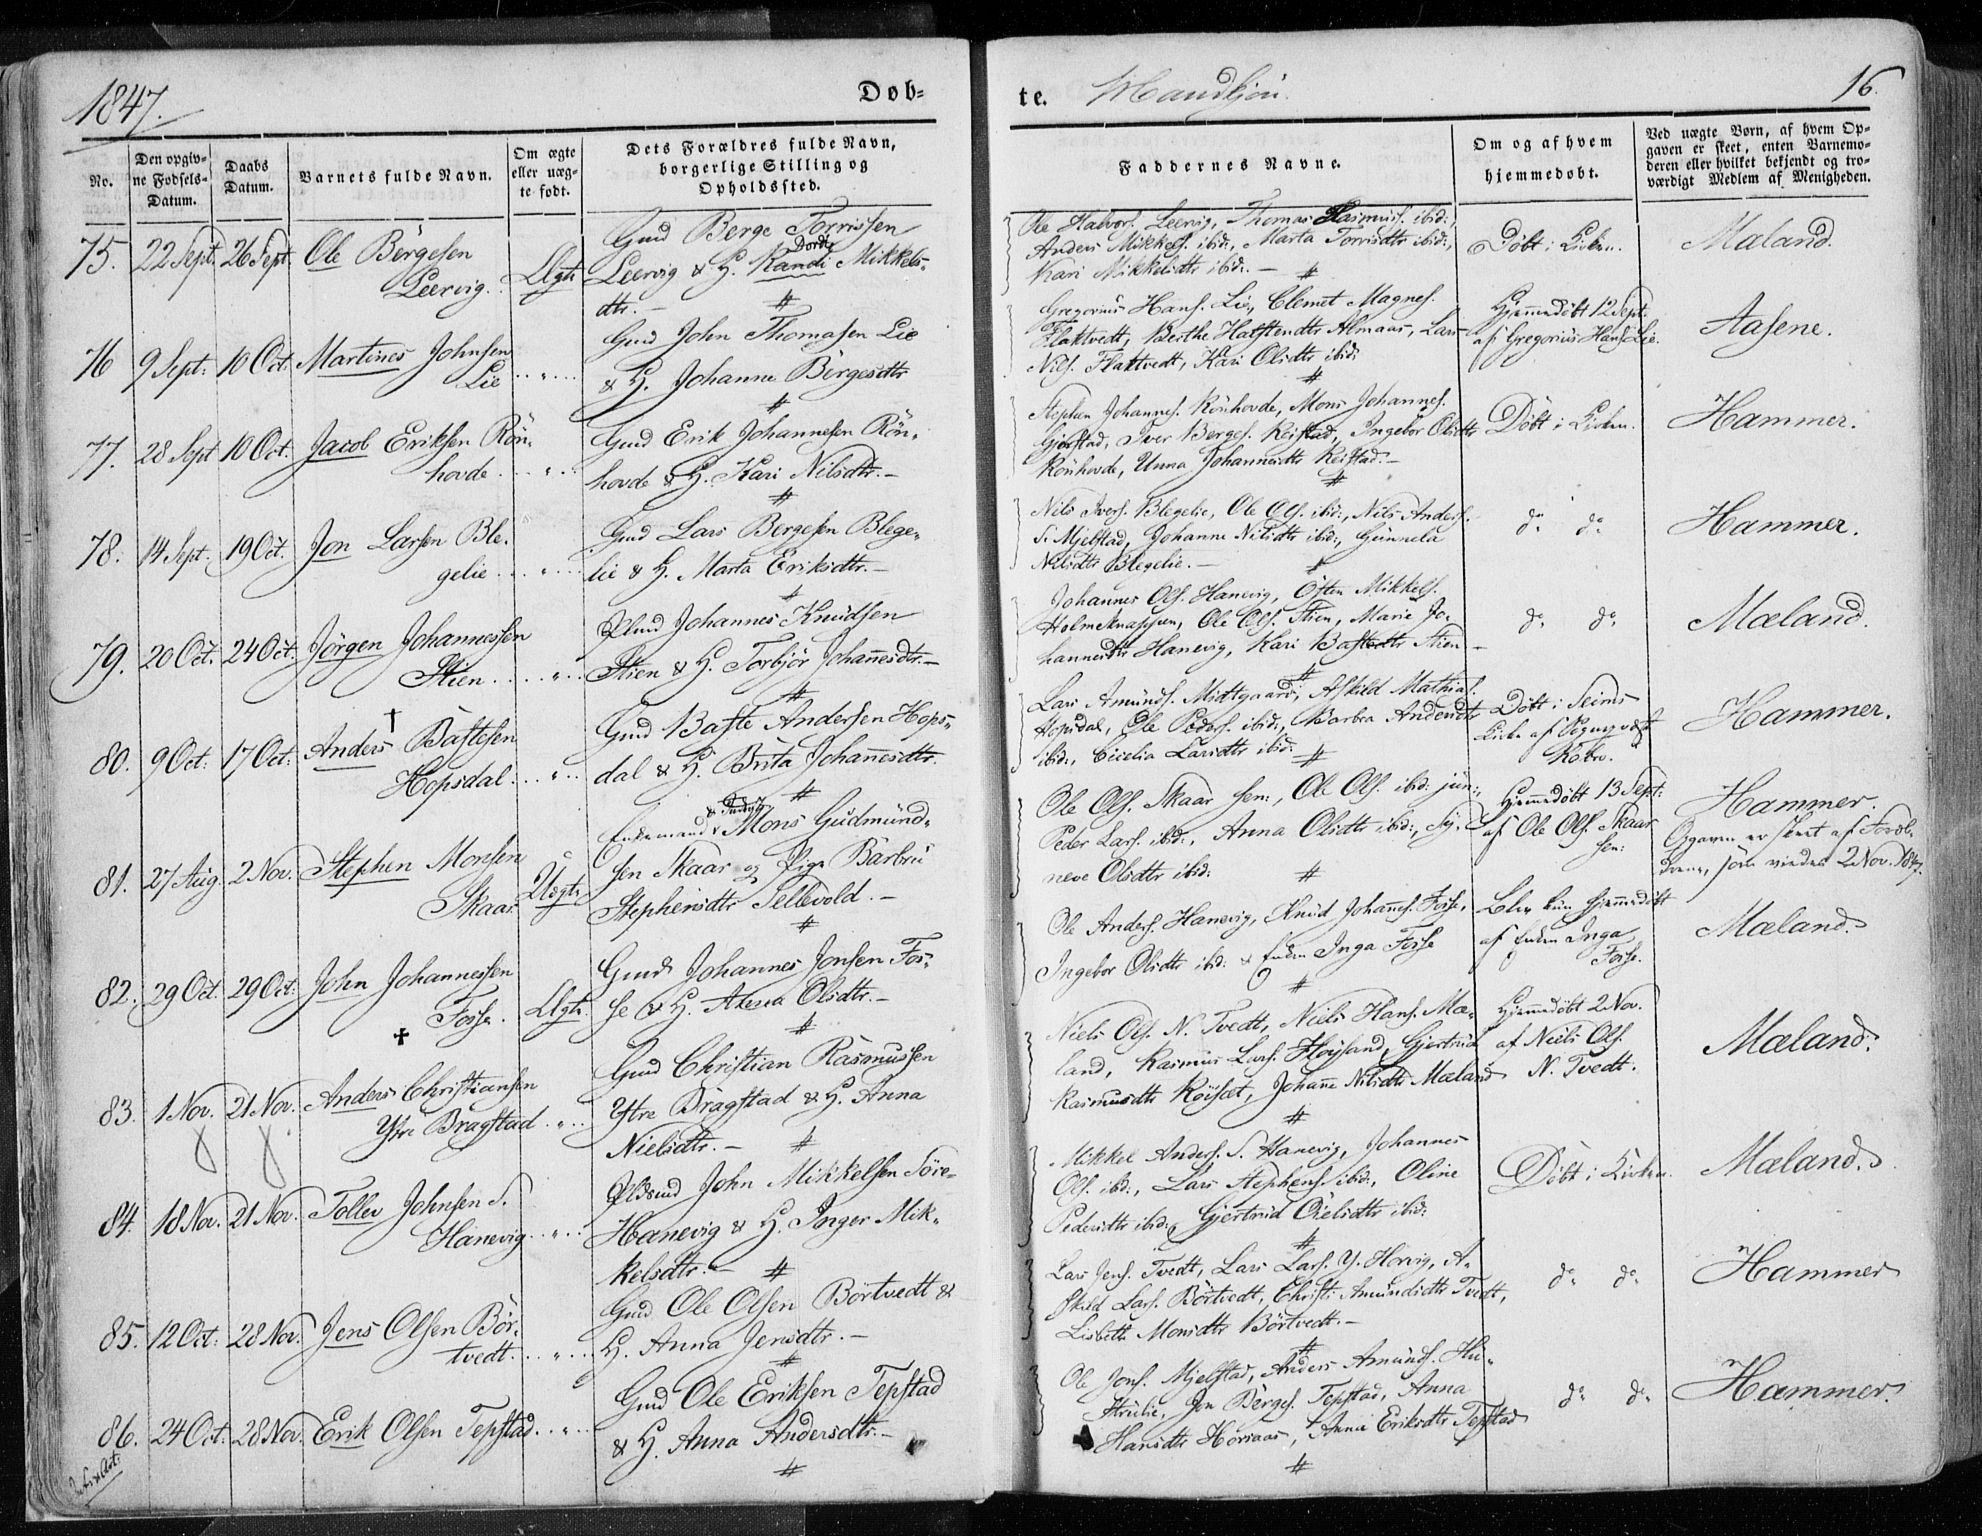 1847.
Døb-
te.
Mandkjøn.
16.
No.
Den opgiv-
ne Fødsels-
Datum.
Daabs
Datum.
Barnets fulde Navn.
Om ægte
eller uæg-
te født.
Dets Forældres fulde Navn,
borgerlige Stilling og
Opholdssted.
Faddernes Navne.
Om og af hvem
hjemmedøbt.
Ved uægte Børn, af hvem Op-
gaven er skeet, enten Barnemo-
deren eller hvilket bekjendt og tro-
værdigt Medlem af Menigheden.
75. 22 Sept. 26 Sept. Ole Børgesen
Leervig.
Ægte
Gmd Berge Torrissen
Dordi
Leervig & H. Randi Mikkels-
dtr. —
Ole Halvors. Leervig, Thomas Rasmus. ibid:,
Anders Mikkels. ibid:, Marta Torrisdtr ibid:,
Kari Mikkelsdtr ibid:. —
Døbt i Kirken.
Mæland.
76 9 Sept: 10 Oct. Martines Johnsen
Lie
Gmd John Thomasen Lie
& H. Johanne Børgesdtr
Gregorius Hans. Lie, Clemet Magnes.
Flattvedt, Berthe Halstendtr Almaas, Lars
Nils. Flattvedt, Kari Olsdtr ibid:
Hjemmedøbt 12 Sept.
af Gregorius Hans. Lie.
Aasene.
77. 28 Sept 10 Oct. Jacob Eriksen Røn-
hovde
Gmd Erik Johannesen Røn-
hovde & H. Kari Nilsdtr. —
Stephen Johannes. Rønhovde, Mons Johannes.
Gjerstad, Iver Berges. Reistad, Ingebor Olsdtr
Rønhovde, Unna Johannesdtr Reistad. —
Døbt i Kirken.
Hammer.
78. 14 Sept. 19 Oct. Jon Larsen Ble-
gelie
Gmd Lars Bergesen Blege-
lie & H. Marta Eriksdtr. —
Nils Ivers. Blegelie, Ole Ols. ibid:, Nils Anders.
S. Mjelstad, Johanne Nilsdtr ibid:, Gunnela
Nilsdtr Blegelie. —
do do
Hammer.
79. 20 Oct. 24 Oct. Jørgen Johannessen
Stien
Johannes Knudsen
Stien & H. Torbjør Johannesdtr. —
Johannes Ols. Hanevig, Østen Mikkels.
Holmeknappen, Ole Ols. Stien, Marie Jo-
hannesdtr Hanevig, Kari Bastedtr Stien —
do do
Mæland.
80. 9 Oct: 17 Oct: Anders † Bastesen
Hopsdal
Gmd Baste Andersen Hops-
dal & H. Brita Johannesdtr.
Lars Amunds. Midtgaard, Askild Mathias.
Hopsdal, Ole Peders. ibid:, Barbra Andersdtr
ibid:, Cicelia Larsdtr ibid:
Døbt i Seims
Kirke af Sogneprest
Kobro.
Hammer.
81. 27 Aug. 2 Nov. Stephen Monsen
Skaar
Uægte
Enkemand Mons Gudmund-
sen Skaar og Pige Barbru
Stephensdtr Sellevold. —
Ole Ols. Skaar sen:, Ole Ols. ibid: jun:,
Peder Lars. ibid:, Anna Olsdtr ibid:, Sy-
neve Olsdtr ibid:
Hjemmedøbt 13 Sept:
af Ole Ols. Skaar
sen:
Hammer.
Opgaven er skeet af Foræl-
drene, 2 Nov. 1847.
82. 29 Oct. 29 Oct: John Johannessen
Fosse. †
Ægte
Gmd Johannes Jonsen Fos-
se & H. Olsdtr. —
Ole Anders. Hanevig, Knud Johannes. Fosse,
Ingebor Olsdtr ibid: & Enken Inga Fosse
Blev kun hjemmedøbt
af Enken Inga
Fosse.
Mæland.
83. 1 Nov. 21 Nov. Anders Christiansen
Ytre Bragstad
Gmd Christian Rasmussen
Ytre Bragstad & H. Anna
Nielsdtr. —
Niels Ols. N. Tvedt, Niels Hans. Mæ-
land, Rasmus Lars. Høysand, Gjertrud
Rasmusdtr Røisæt, Johane Nilsdtr Mæland
Hjemmedøbt 2 Nov.
af Niels Ols.
N. Tvedt.
Mæland.
84. 18 Nov. 21 Nov. Tollev Johnsen S.
Hanevig
John Mikkelsen Søre-
Hanevig & H. Inger Mik-
kelsdtr. —
Mikkel Anders. S. Hanevig, Johannes
Ols. ibid:, Lars Stephens. ibid:, Oline
Pedersdtr ibid:, Gjertrud ibid:
Døbt i Kirken.
Mæland.
85. 12 Oct: 28 Nov. Jens Olsen Bør-
tvedt
Gmd Ole Olsen Børtvedt &
H. Anna Jensdtr. —
Lars Jens. Tvedt, Lars Lars. Y. Horvig, A-
skild Lars. Børtvedt, Christi Amundsdtr Tvedt,
Lisbeth Monsdtr Børtvedt. —
do do
Hammer
86. 24 Oct: 28 Nov. Erik Olsen Tepstad
Gmd Ole Eriksen Tepstad
& H. Anna Andersdtr. —
Ole Jons. Mjelstad, Anders Amunds. Hu-
strulie, Jon Børges. Tepstad, Anna
Hansdtr Horsaas, Anna Eriksdtr Tepstad
do do
Hammer.